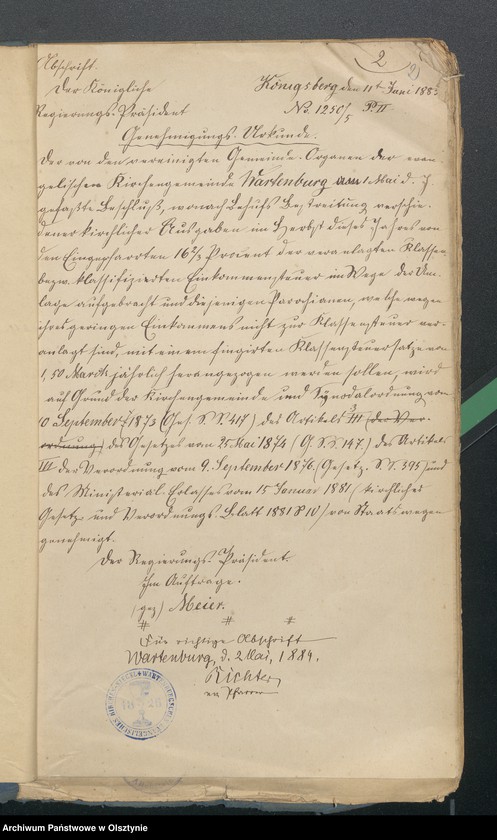 2
Abschrift.
Der Königliche
Königsberg den 11t Juni 188
Regierungs-Präsident
No. 1250/5 P. II
Genehmigungs-Urkunde.
Der von den vereinigten Gemeinde-Organen der evan
gelischen Kirchengemeinde Wartenburg am 1 Mai d. J.
gefaßte Beschluß, wonach behufs Bestreitung verschie-
dener kirchlicher Ausgaben im Herbst dieses Jahres von
den Eingepfarrten 16 2/3 Procent der veranlagten Klassen
bezw. klassifizierten Einkommensteuer im Wege der Um-
lage aufgebracht und diejenigen Parochianen, welche wegen
ihres geringen Einkommens nicht zur Klassensteuer ver-
anlagt sind, mit einem fingirten Klassensteuersatze von
1,50 Mark jährlich herangezogen werden sollen, wird
auf Grund der Kirchengemeinde und Synodalordnung vom
10 September 1873 (Ges. S. S. 417) des Artikels III (der Ver-
ordnung) des Gesetzes vom 25 Mai 1874 (G. S. S. 147.) des Artikels
III der Verordnung vom 9. September 1876. (Gesetz. S. S. 395) und
des Ministerial-Erlasses vom 15 Januar 1881 (kirchliches
Gesetz und Verordnungs-Blatt 1881 S 10) von Staatswegen
genehmigt.
Der Regierungs-Präsident.
Im Auftrage.
(gez) Meier.
# # #
Für richtige Abschrift
Wartenburg, d. 2 Mai, 1884.
Richter,
ev Pfarrer
Archiwum Państwowe w Olsztynie